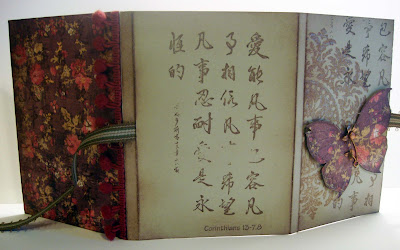 愛能凡事包容凡
事相信凡事希望
凡事忍耐愛是永
恆的
Corinthians 13-7,8
包容凡
事希望
愛是永